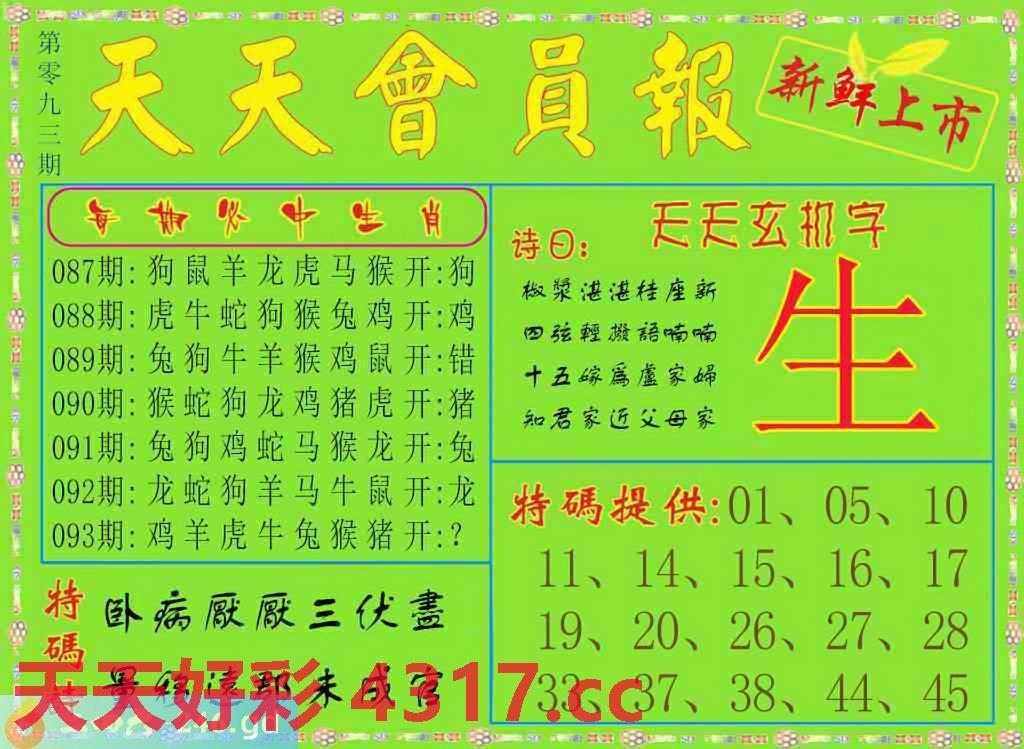 第零九三期
天天會員報
新鮮上市
每期必中生肖
087期:狗鼠羊龙虎马猴开:狗
088期:虎牛蛇狗猴兔鸡开:鸡
089期:兔狗牛羊猴鸡鼠开:错
090期:猴蛇狗龙鸡猪虎开:猪
091期:兔狗鸡蛇马猴龙开:兔
092期:龙蛇狗羊马牛鼠开:龙
093期:鸡羊虎牛兔猴猪开:?
天天玄机字
诗曰:
椒漿湛湛桂座新
四弦輕撥語喃喃
十五嫁為盧家婦
知君家近父母家
生
特碼提供:01、05、10
11、14、15、16、17
19、20、26、27、28
33、37、38、44、45
特碼
卧病厭厭三伏盡
未成官
天天好彩 4317.cc